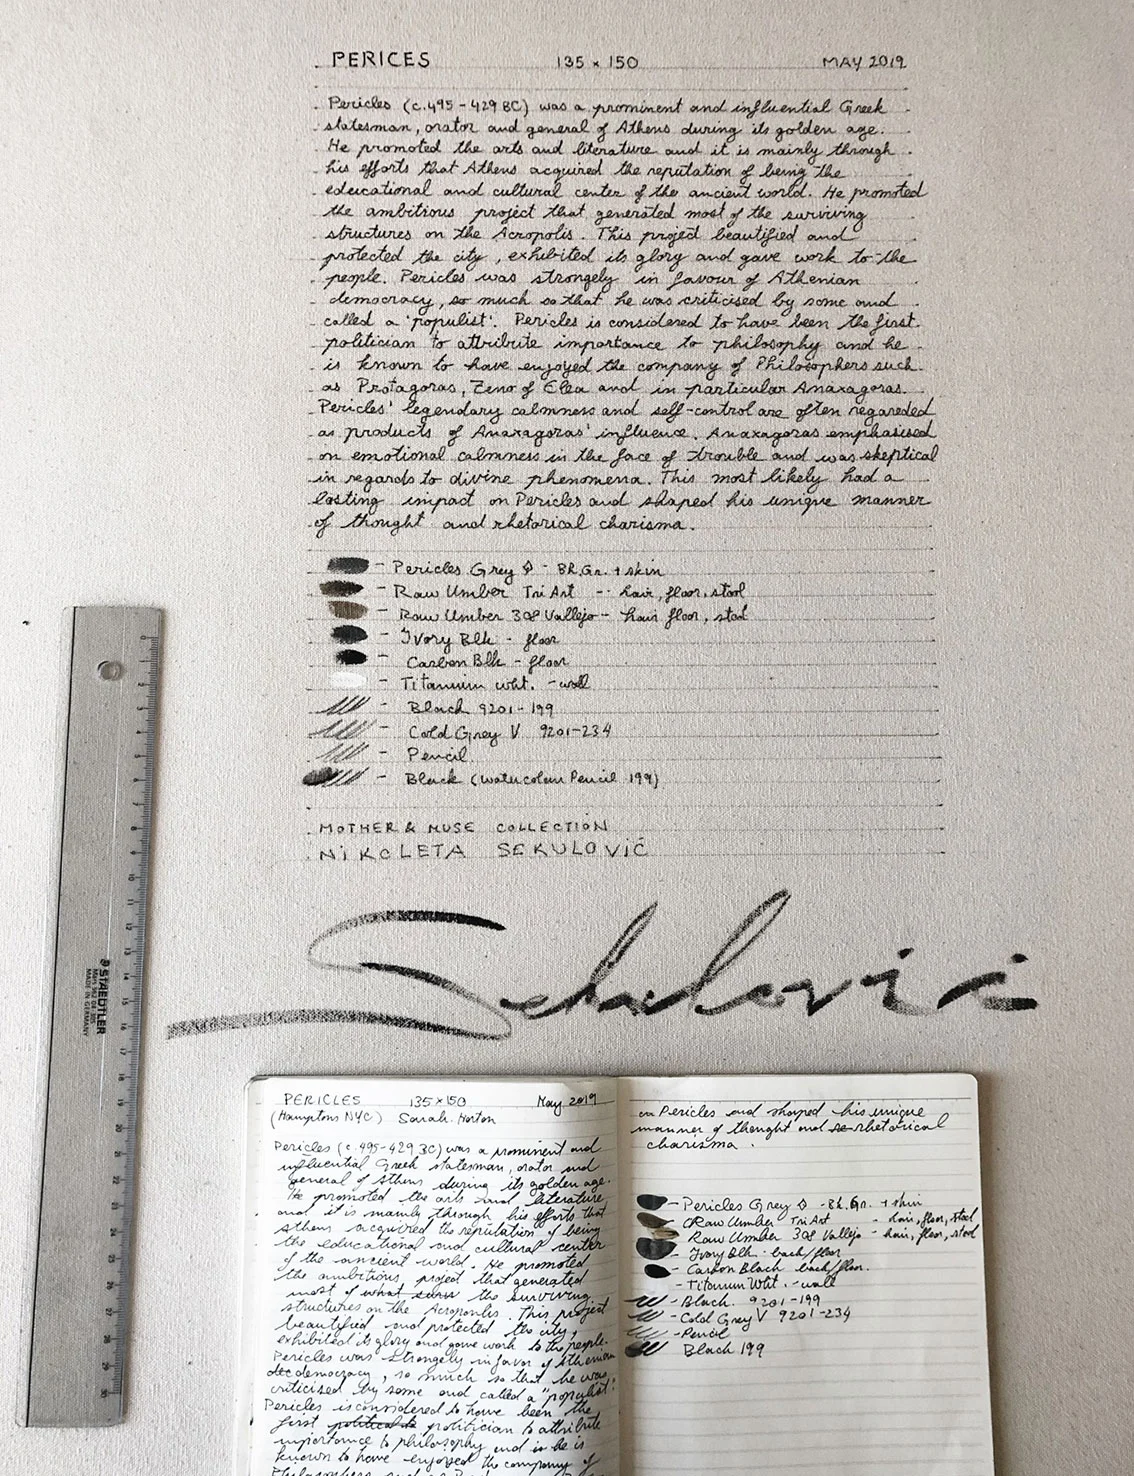 PERICES 135 x 150 MAY 2019
Pericles (c.495-429 BC) was a prominent and influential Greek
statesman, orator and general of Athens during its golden age.
He promoted the arts and literature and it is mainly through
his efforts that Athens acquired the reputation of being the
edeucational and cultural center of the ancient world. He promoted
the ambitious project that generated most of the surviving
structures on the Acropolis. This project beautified and
protected the city, exhibited its glory and gave work to the
people. Pericles was strongely in favour of Athenian
democracy, so much so that he was criticised by some and
called a 'populist'. Pericles is considered to have been the first
politician to attribute importance to philosophy and he
is known to have enjoyed the company of Philosophers such
as Protagoras, Zeno of Elea and in particular Anaxagoras.
Pericles' legendary calmness and self-control are often regareded
as products of Anaxagoras' influence. Anaxagoras emphasised
on emotional calmness in the face of trouble and was skeptical
in regards to divine phenomena. This most likely had a
lasting impact on Pericles and shaped his unique manner
of thought and rhetorical charisma.
- Pericles Grey - BR.Gr. + skin
- Raw Umber Tri Art - hair, floor, stool
- Raw Umber 308 Vallejo - hair floor, stool
- Ivory Blk - floor
- Carbon Blk - floor
- Titanium wht. - wall
- Black 9201-199
- Cold Grey V 9201-234
- Pencil
- Black (watercolour Pencil 199)
MOTHER & MUSE COLLECTION
NIKOLETA SEKULOVIĆ
Sekulović
STAEDTLER
MADE IN GERMANY
0 1 2 3 4 5 6 7 8 9 10 11 12 13 14 15 16 17 18 19 20 21 22 23 24 25 26 27 28 29 30
PERICLES 135x150 May 2019
(Hamptons NYC) Sarah Horton
Pericles (c.495-429 BC) was a prominent and
influential Greek statesman, orator and
general of Athens during its golden age.
He promoted the arts and literature
and it is mainly through his efforts that
Athens acquired the reputation of being
the educational and cultural center
of the ancient world. He promoted
the ambitious project that generated
most of what the surviving
structures on the Acropolis. This project
beautified and protected the city,
exhibited its glory and gave work to the people.
Pericles was strongely in favor of Athenian
democracy, so much so that he was
criticised by some and called a "populist".
Pericles is considered to have been the
first politician to attribute
importance to philosophy and he is
known to have enjoyed the company of
on Pericles and shaped his unique
manner of thought and rhetorical
charisma.
- Pericles Grey - Bk.Gr. + skin
- Raw Umber Tri Art - hair, floor, stool
- Raw Umber 308 Vallejo - hair, floor, stool
- Ivory Blk - back/floor
- Carbon Black back/floor.
- Titanium Wht. - wall
- Black 9201-199
- Cold Grey V 9201-234
- Pencil
- Black 199